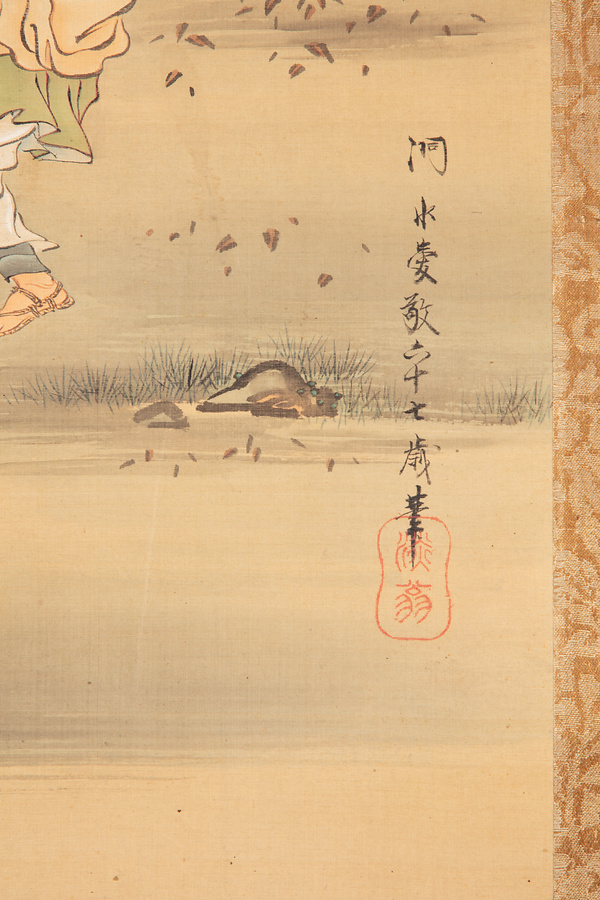 洞水愛敬六十七歳筆
淡翁